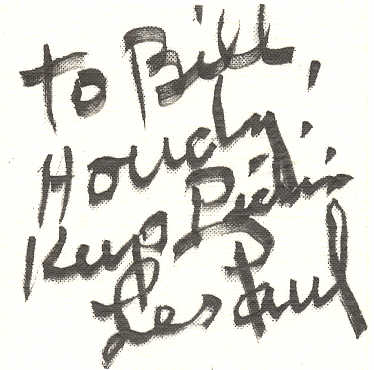 To Bill,
Howdy!
Keep Pickin'
Les Paul